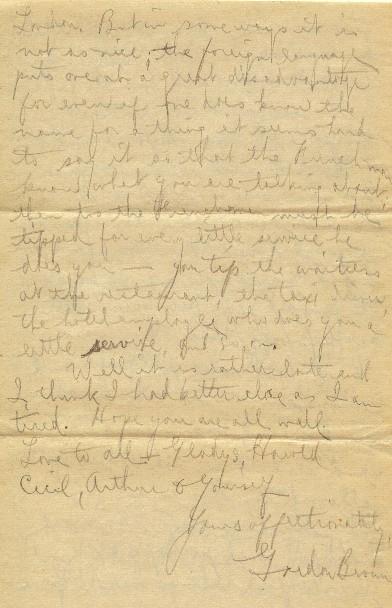 London. But in some ways it is
not as nice, the foreign language
puts one at a great disadvantage
for even if one does know the
name for a thing it seems hard
to say it so that the French
know what you are talking about
then too the Frenchman must be
tipped for every little service he
does you — you tip the waiters
at the restaurant, the taxi driver
the hotel employee who does you a
little service, and so on.
Well it is rather late and
I think I had better close as I am
tired. Hope you are all well.
Love to all – Gladys, Harold
Cecil, Arthur & Yourself
Yours affectionately
Gordon Brown